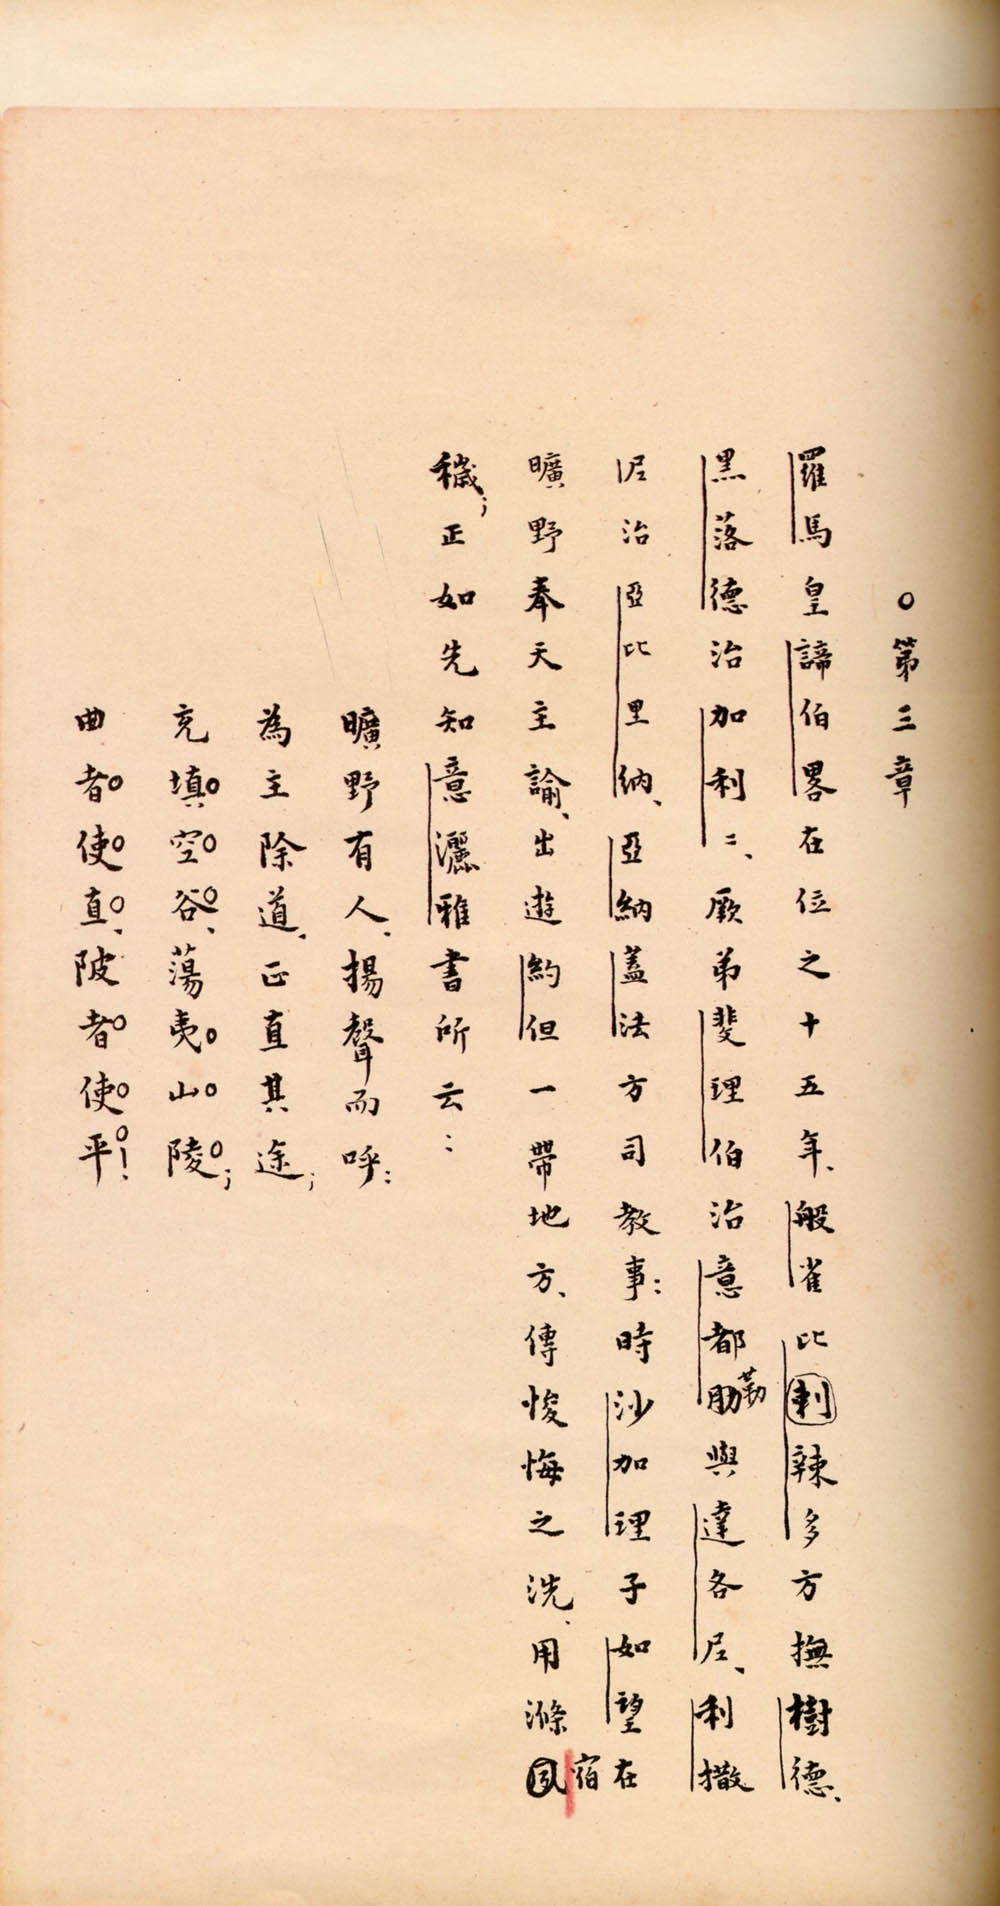 ○第三章
羅馬皇諦伯畧在位之十五年、般雀比剌辣多方撫樹德、
黑落德治加利二、厥弟斐理伯治意都肋勒與達各尼、利撒
尼治亞比里納、亞納蓋法方司教事：時沙加理子如望在
曠野奉天主諭、出遊約但一帶地方、傳悛悔之洗、用滌夙宿
穢；正如先知意灑雅書所云：
曠野有人、揚聲而呼：
為主除道、正直其途；
充填空谷、蕩夷山陵；
曲者使直、陂者使平！